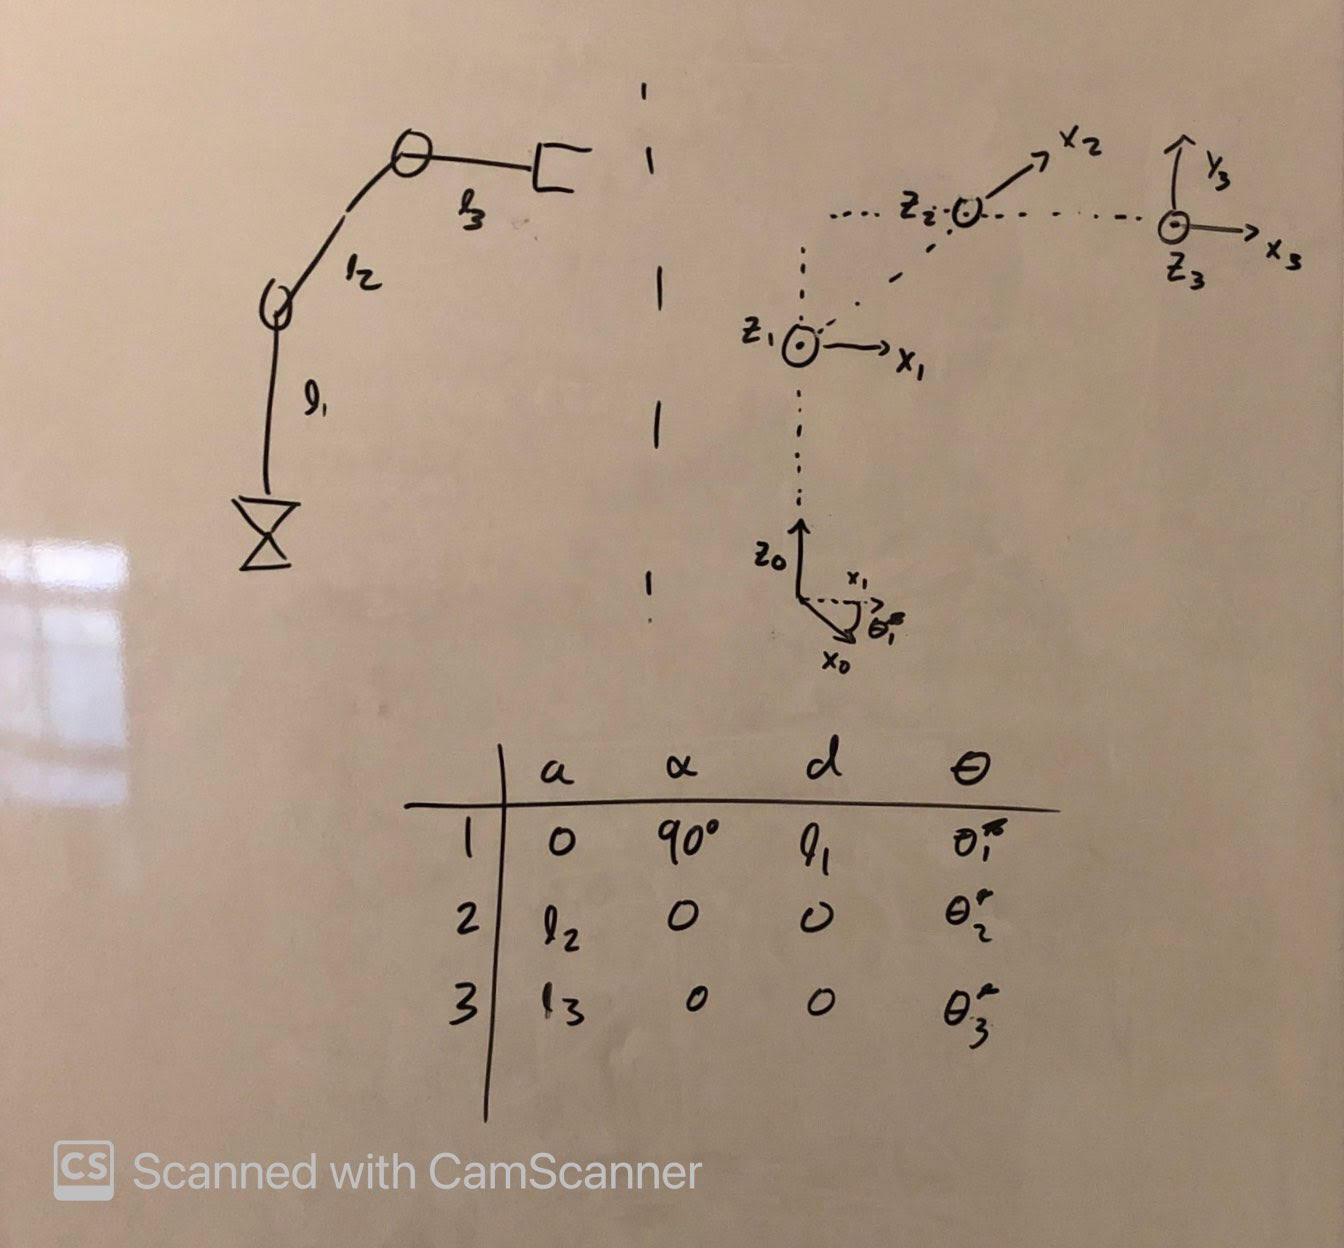 l₃
l₂
l₁
x₂
y₃
z₂
x₃
z₃
z₁
x₁
z₀
x₁
θ₁*
x₀
a α d θ
1 0 90° l₁ θ₁*
2 l₂ 0 0 θ₂*
3 l₃ 0 0 θ₃*
CS Scanned with CamScanner